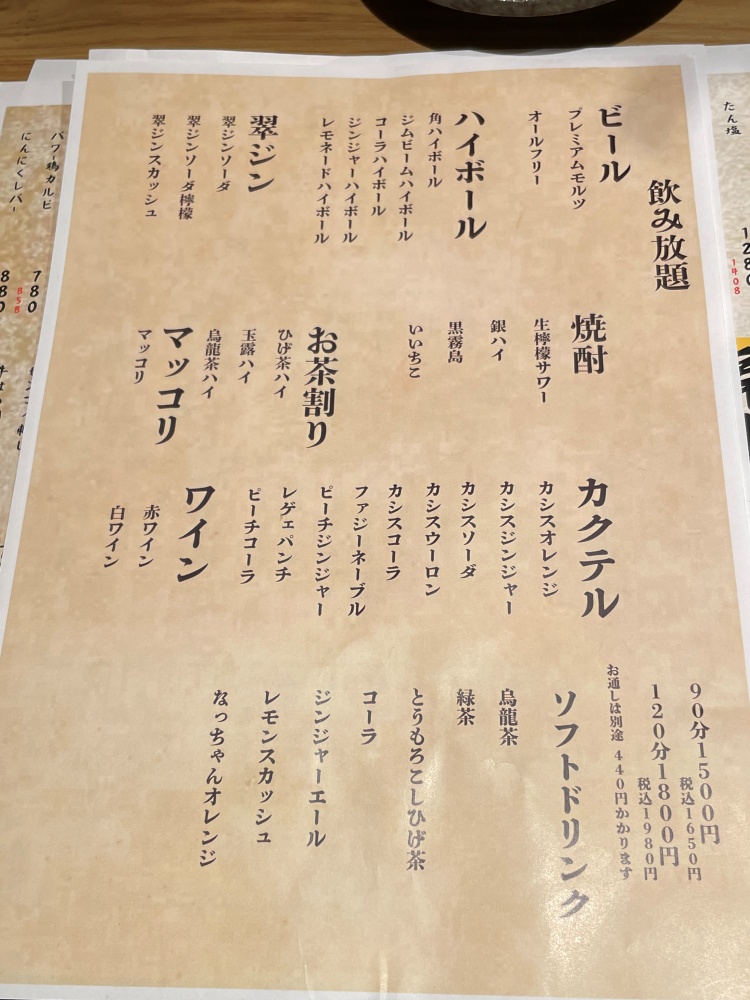 飲み放題
90分1500円
税込1650円
120分1800円
税込1980円
お通しは別途 440円かかります
ビール
プレミアムモルツ
オールフリー
ハイボール
角ハイボール
ジムビームハイボール
コーラハイボール
ジンジャーハイボール
レモネードハイボール
翠ジン
翠ジンソーダ
翠ジンソーダ檸檬
翠ジンスカッシュ
焼酎
生檸檬サワー
銀ハイ
黒霧島
いいちこ
お茶割り
ひげ茶ハイ
玉露ハイ
烏龍茶ハイ
マッコリ
マッコリ
カクテル
カシスオレンジ
カシスジンジャー
カシスソーダ
カシスウーロン
カシスコーラ
ファジーネーブル
ピーチジンジャー
レゲェパンチ
ピーチコーラ
ワイン
赤ワイン
白ワイン
ソフトドリンク
烏龍茶
緑茶
とうもろこしひげ茶
コーラ
ジンジャーエール
レモンスカッシュ
なっちゃんオレンジ
たん塩
1280
1408
パワー鶏カルビ
780
858
にんにくレバー
880